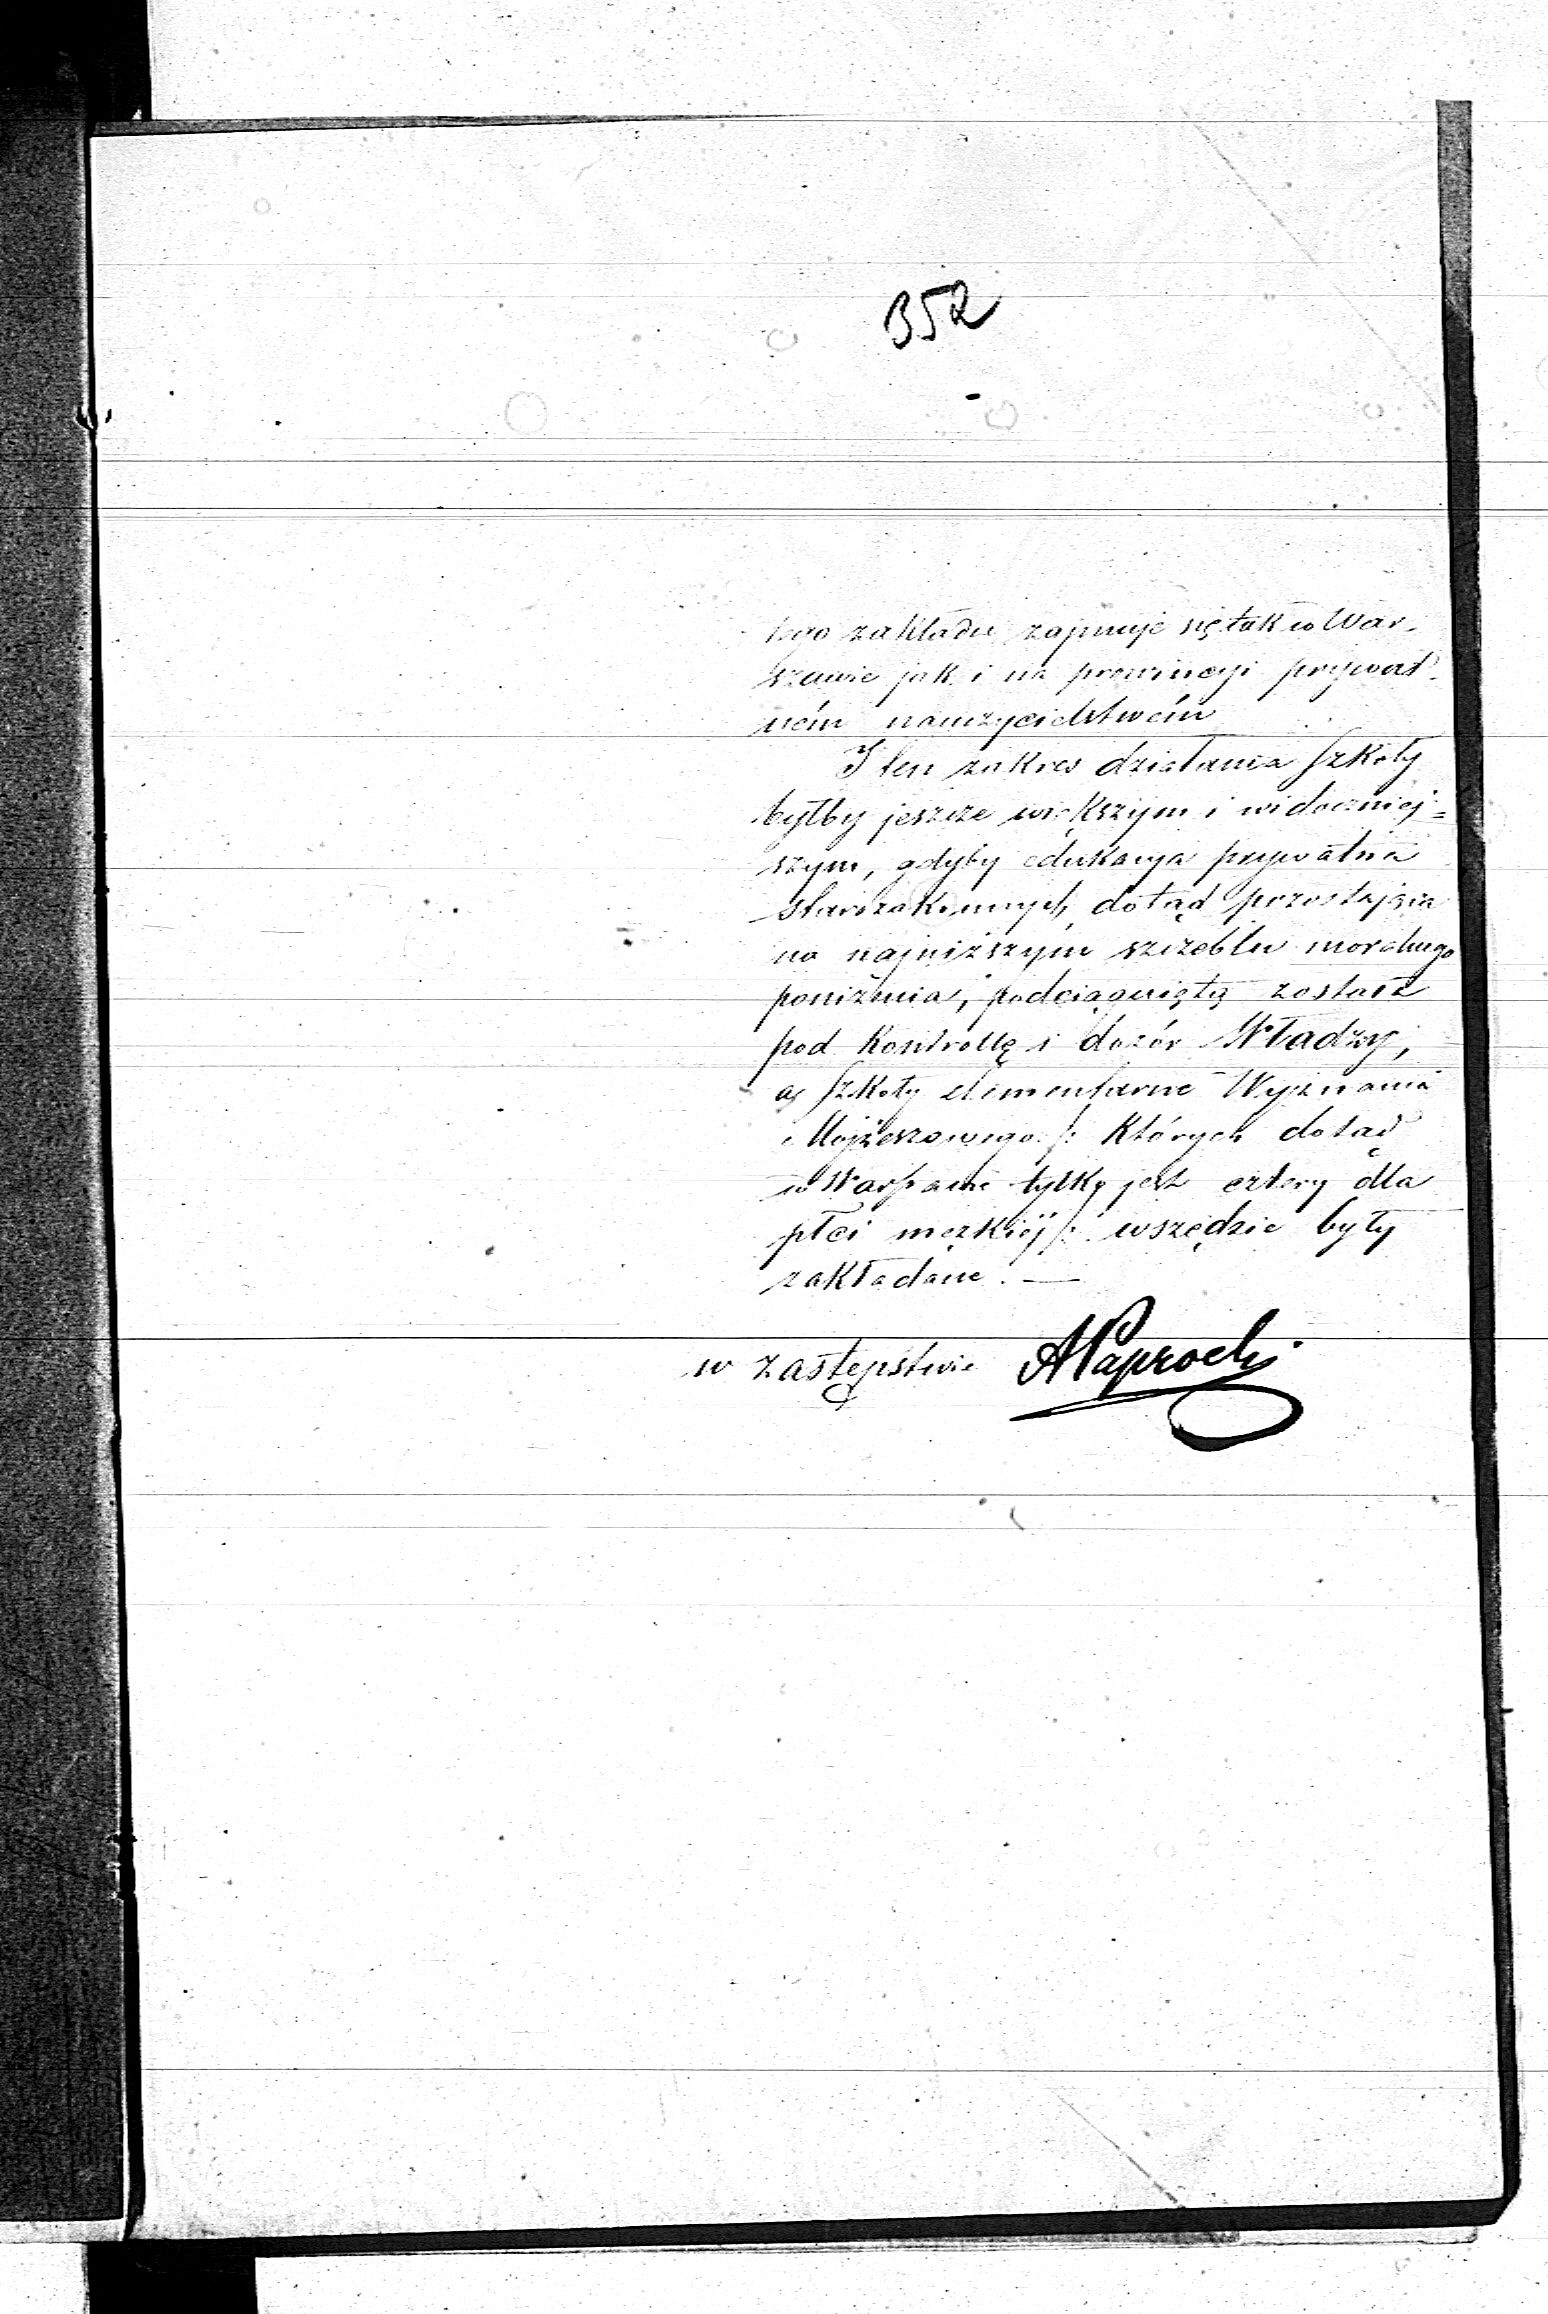 352
tego zakładu zajmuje się tak w War-
szawie jak i na prowincyi prywat-
ném nauczycielstwém
I ten zakres działania Szkoły
byłby jeszcze większym i widoczniej=
szym, gdyby edukacya prywatna
starozakonnych dotąd pozostająca
na najniższym szczeblu moralnego
poniżenia, podciągniętą została
pod kontrollę i dozór Władzy,
a Szkoły elementarne Wyznania
Mojżeszowego /: których dotąd
w Warszawie tylko jest cztery dla
płci męzkiéj :/ wszędzie były
zakładane. —
w zastępstwie APaprocki